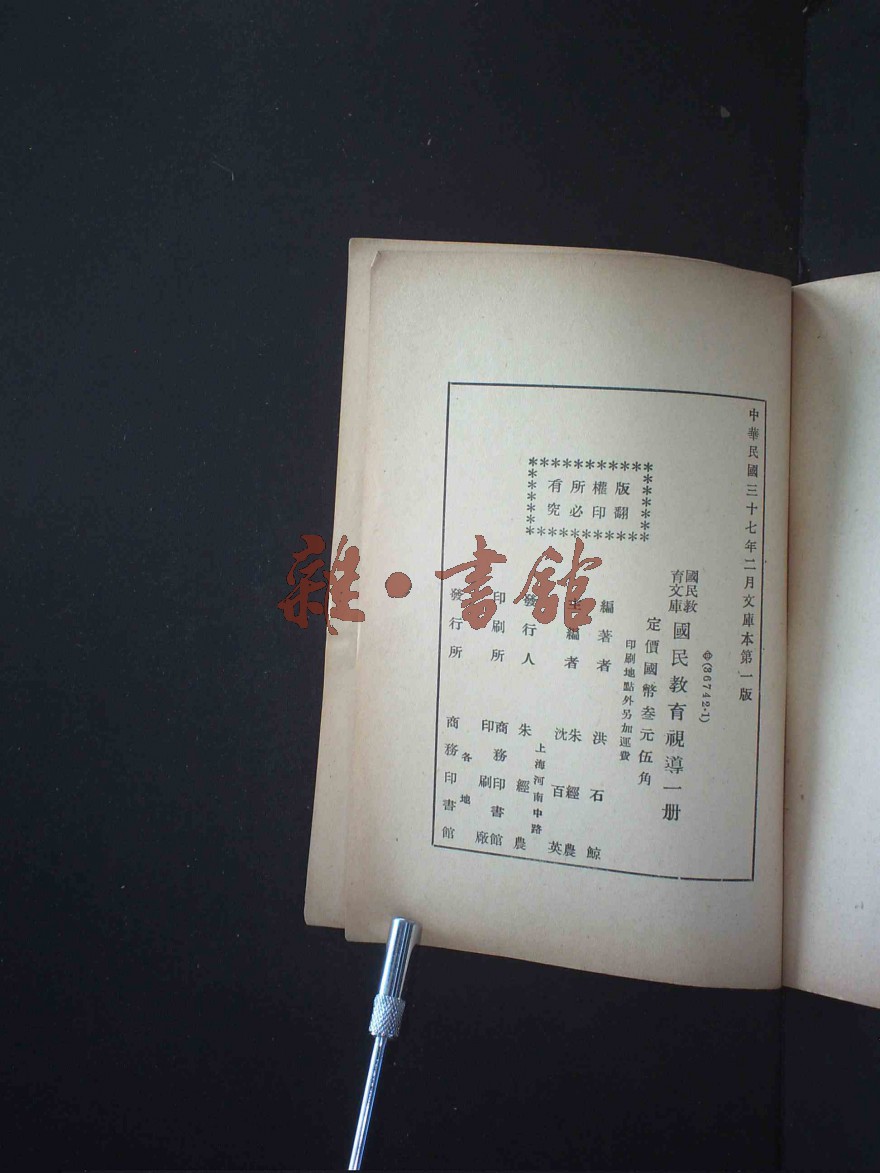 中華民國三十七年二月文庫本第一版
⊕(36742·1)
國民教育文庫 國民教育視導一册
定價國幣叁元伍角
印刷地點外另加運費
版權所有
翻印必究
編著者 洪石鯨
主編者 朱經農 沈百英
上海河南中路
發行人 朱經農
印刷所 商務印書館印刷廠
各地
發行所 商務印書館
雜·書館